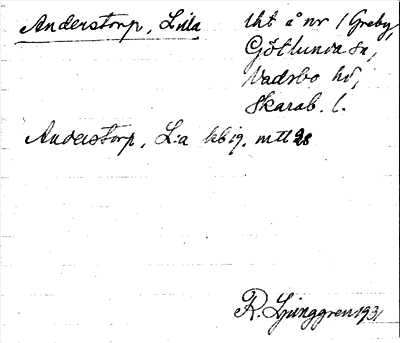 Anderstorp, Lilla
Uht å nr 1 Greby,
Götlunda sn,
Vadsbo hd,
Skarab. l.
Anderstorp, L:a hbig. mtl
R. Ljunggren 1931